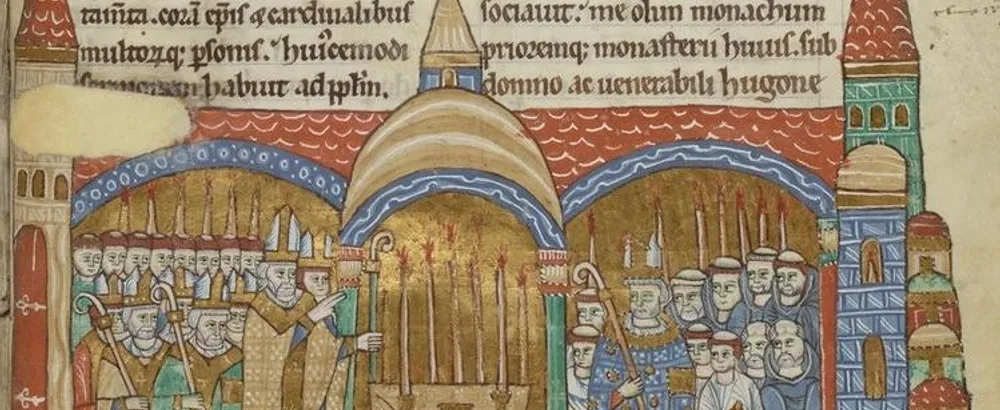 corā ep̄is & cardinalibus
multorꝝq; p̱sonis. hui᷒cemodi
habuit ad pp̄lm.
sociauit. me olim monachum
prioremq; monasterii huius. sub
domno ac uenerabili hugone